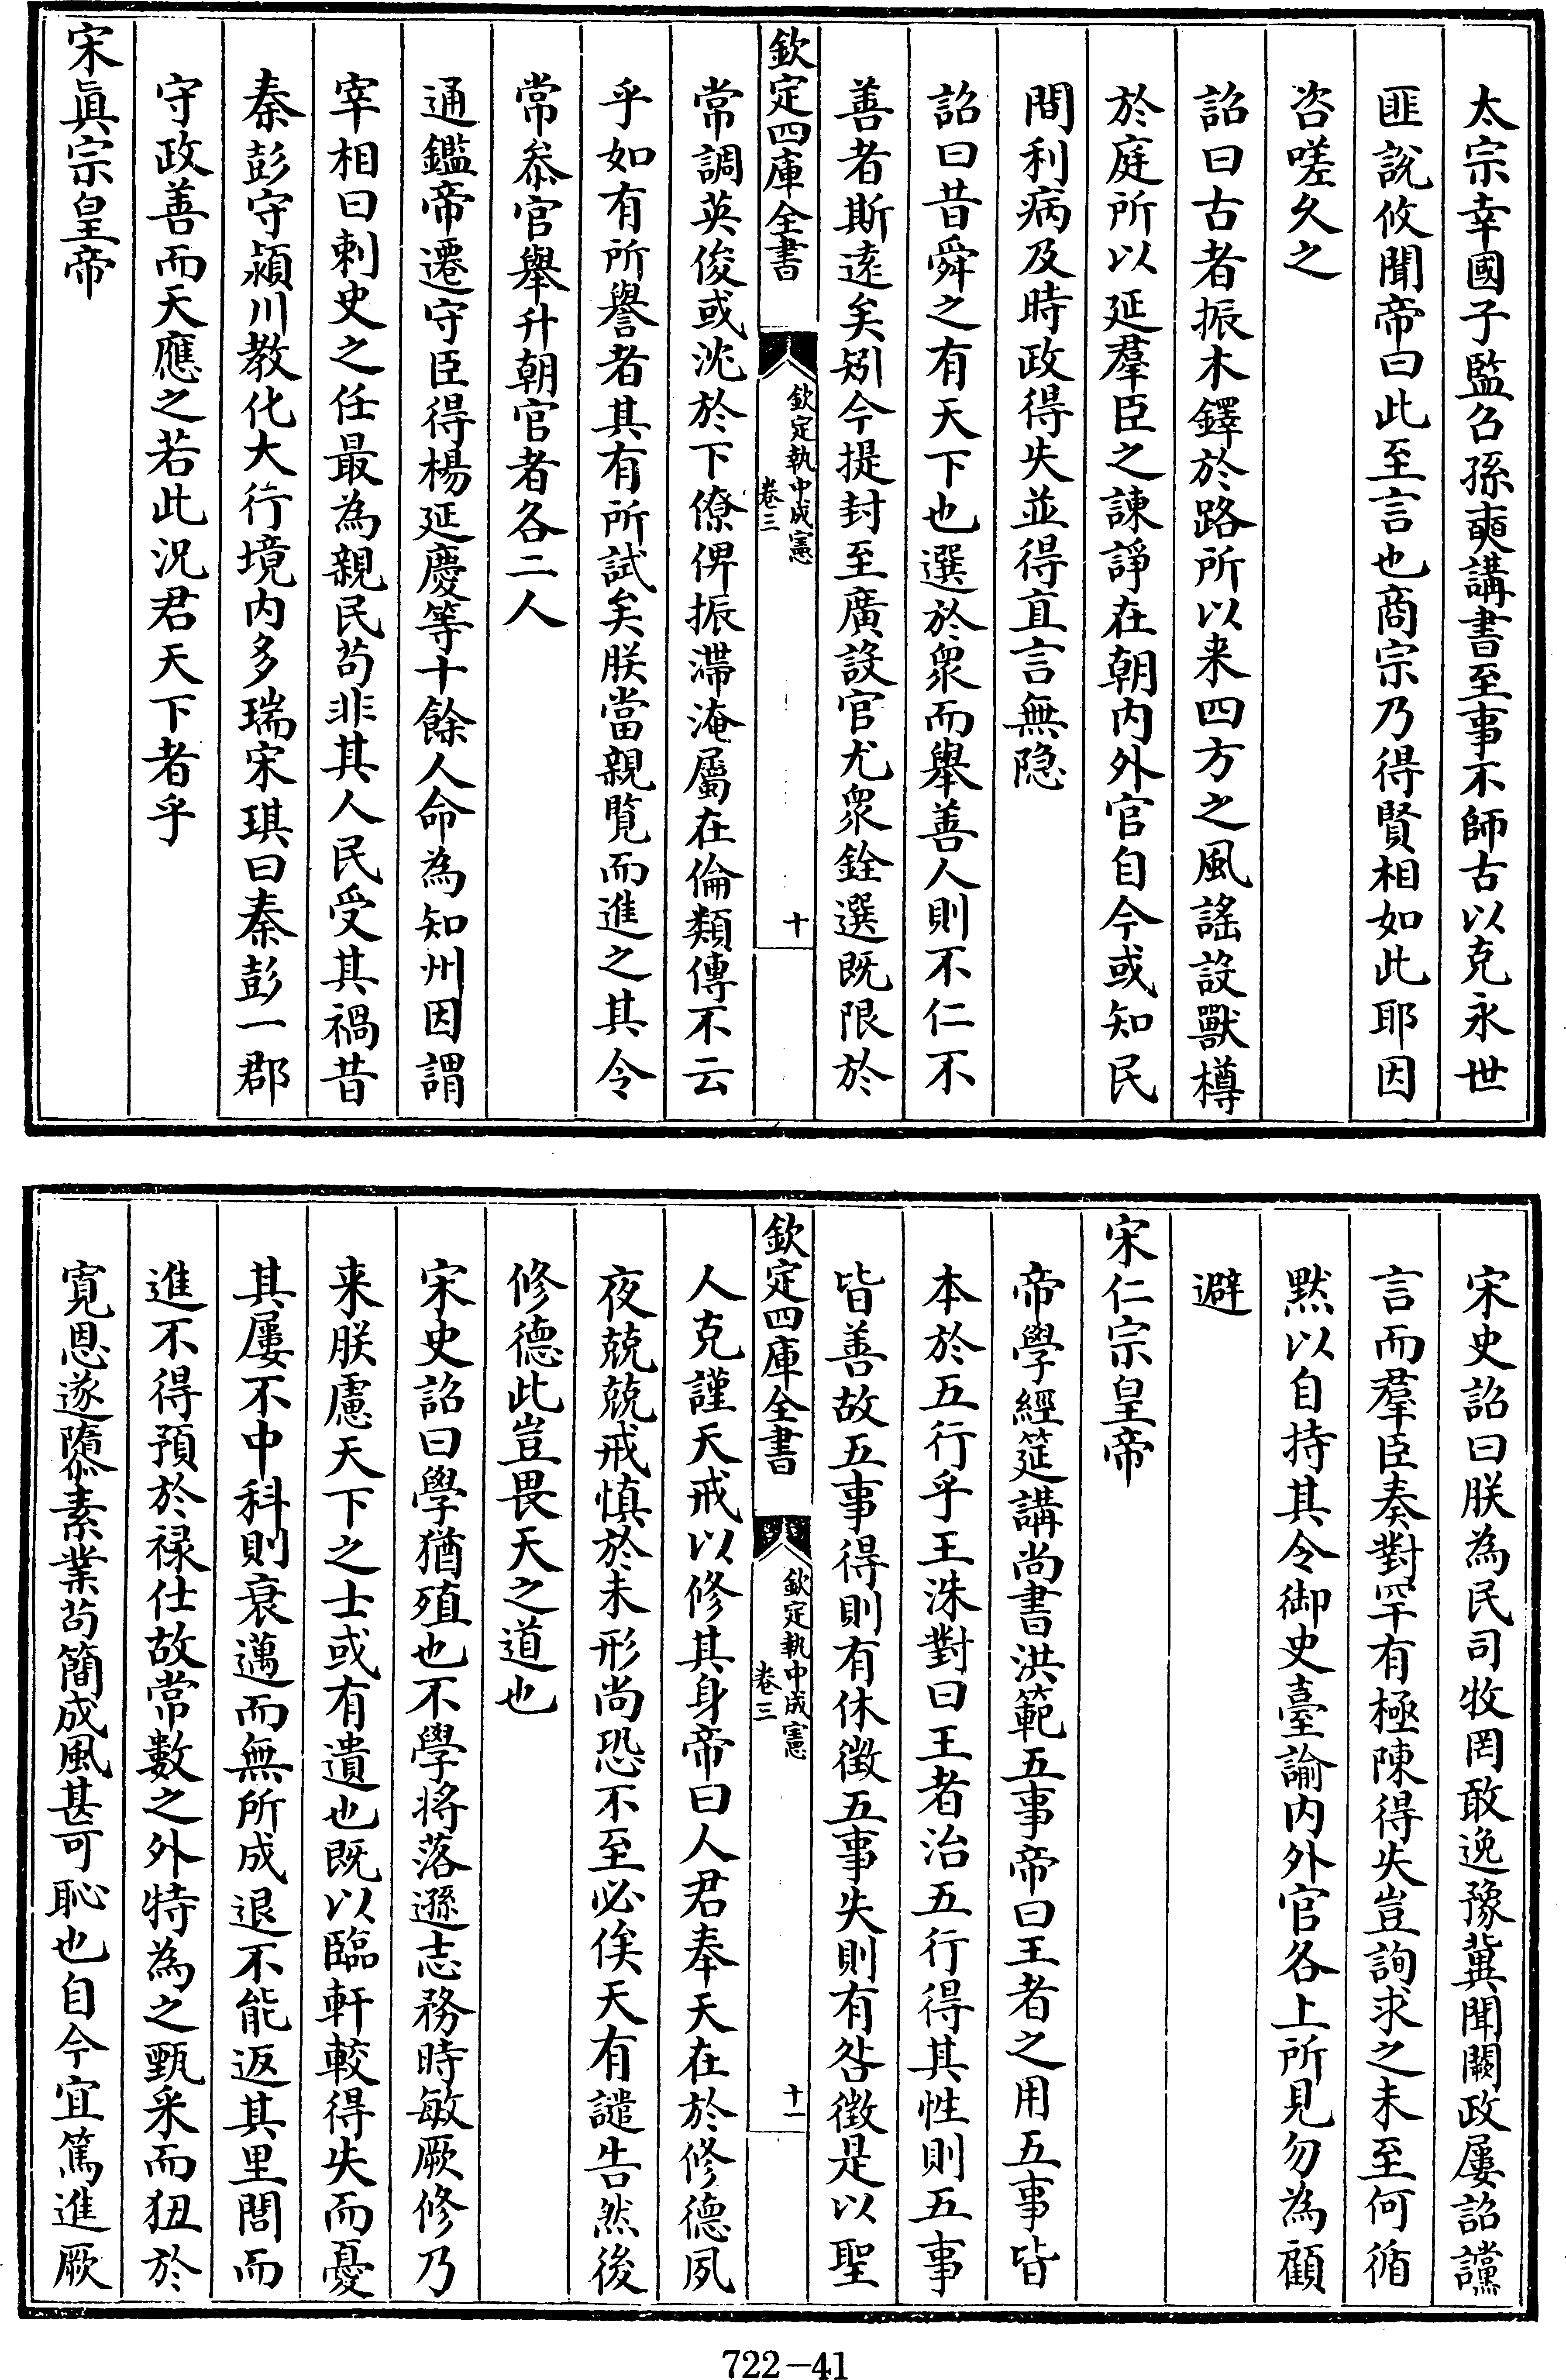 太宗幸國子監召孫奭講書至事不師古以克永世
匪說攸聞帝曰此至言也商宗乃得賢相如此耶因
咨嗟久之
詔曰古者振木鐸於路所以来四方之風謠設獸樽
於庭所以延羣臣之諫諍在朝内外官自今或知民
間利病及時政得失並得直言無隐
詔曰昔舜之有天下也選於衆而舉善人則不仁不
善者斯逺矣矧今提封至廣設官尤衆銓選既限於
欽定四庫全書
欽定執中成憲
卷三
十
常調英俊或沈於下僚俾振滯淹屬在倫類傳不云
乎如有所譽者其有所試矣朕當親覧而進之其令
常叅官舉升朝官者各二人
通鑑帝遷守臣得楊延慶等十餘人命為知州因謂
宰相曰刺史之任最為親民茍非其人民受其禍昔
秦彭守潁川教化大行境内多瑞宋琪曰秦彭一郡
守政善而天應之若此況君天下者乎
宋眞宗皇帝
宋史詔曰朕為民司牧罔敢逸豫冀聞闕政屢詔讜
言而羣臣奏對罕有極陳得失豈詢求之未至何循
黙以自持其令御史臺諭内外官各上所見勿為顧
避
宋仁宗皇帝
帝學經筵講尚書洪範五事帝曰王者之用五事皆
本於五行乎王洙對曰王者治五行得其性則五事
皆善故五事得則有休徴五事失則有咎徴是以聖
欽定四庫全書
欽定執中成憲
卷三
十一
人克謹天戒以修其身帝曰人君奉天在於修德夙
夜兢兢戒慎於未形尚恐不至必俟天有譴告然後
修德此豈畏天之道也
宋史詔曰學猶殖也不學将落遜志務時敏厥修乃
来朕慮天下之士或有遺也既以臨軒較得失而憂
其屢不中科則衰邁而無所成退不能返其里閭而
進不得預於禄仕故常數之外特為之甄采而狃於
寛恩遂隳素業茍簡成風甚可恥也自今宜篤進厥
722-41